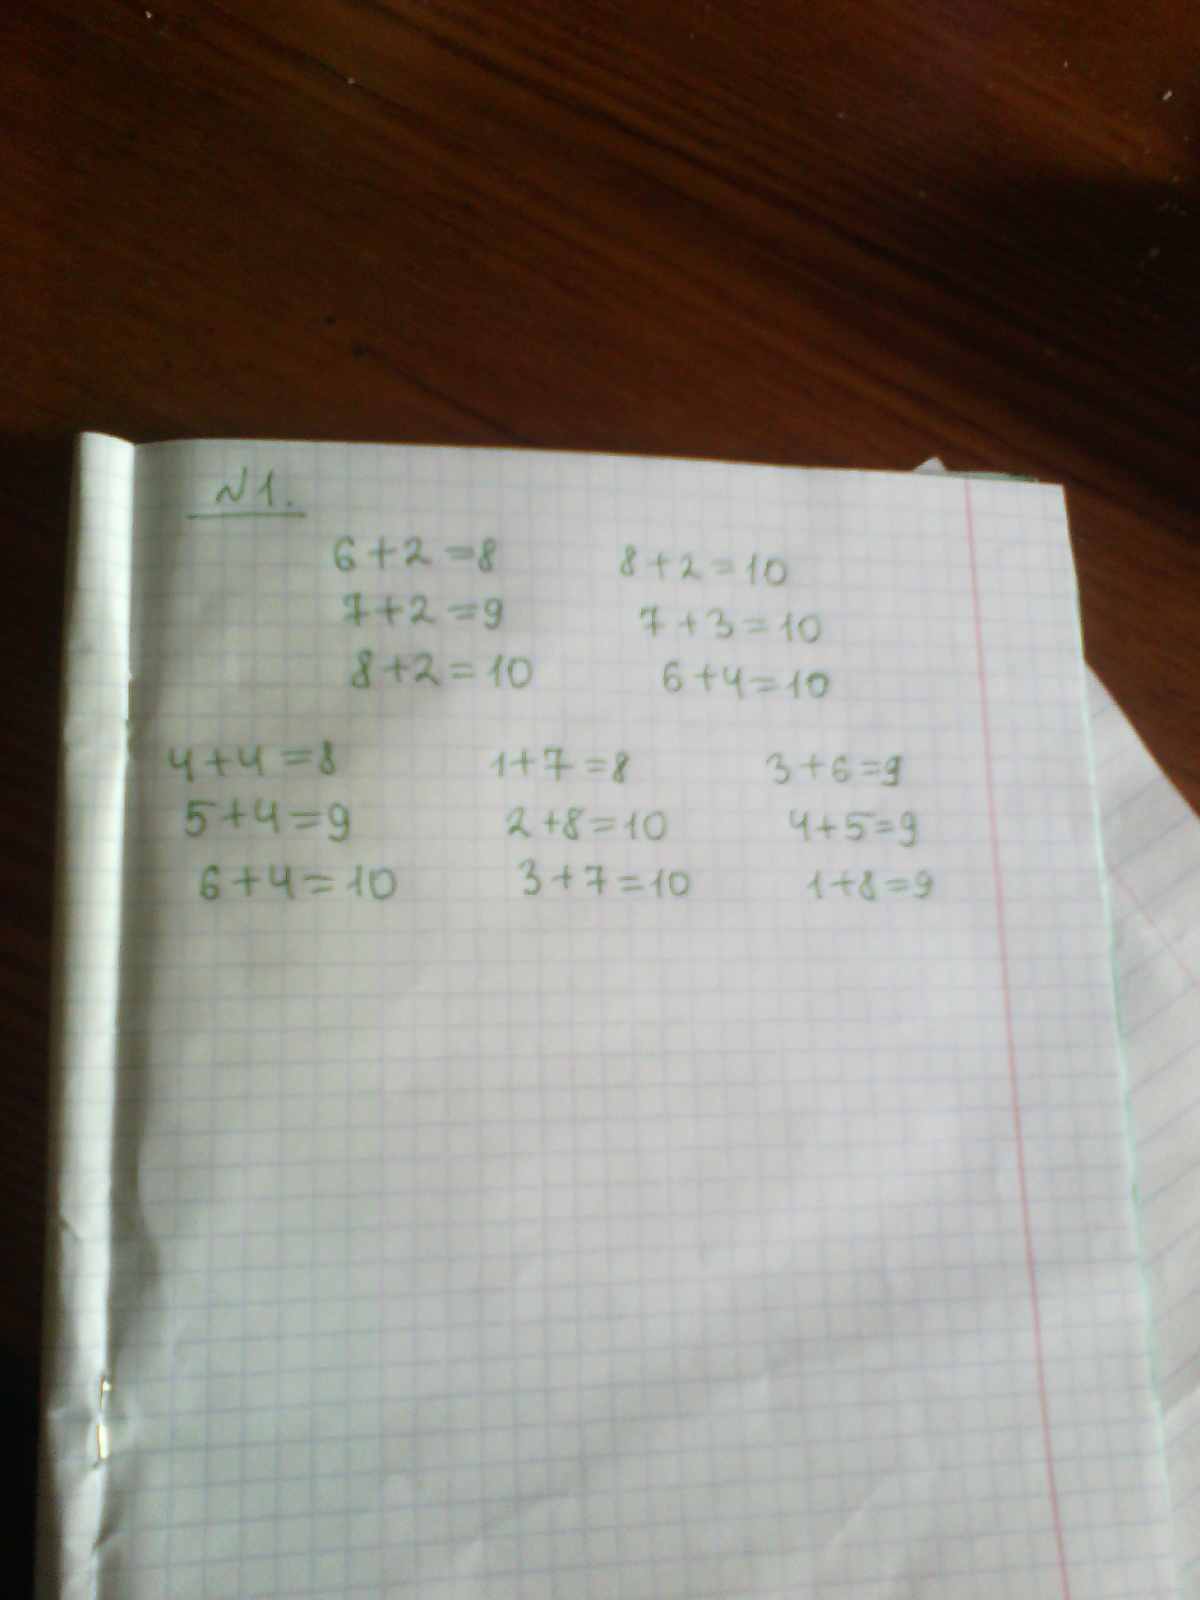 №1.
6+2=8 8+2=10
7+2=9 7+3=10
8+2=10 6+4=10
4+4=8 1+7=8 3+6=9
5+4=9 2+8=10 4+5=9
6+4=10 3+7=10 1+8=9